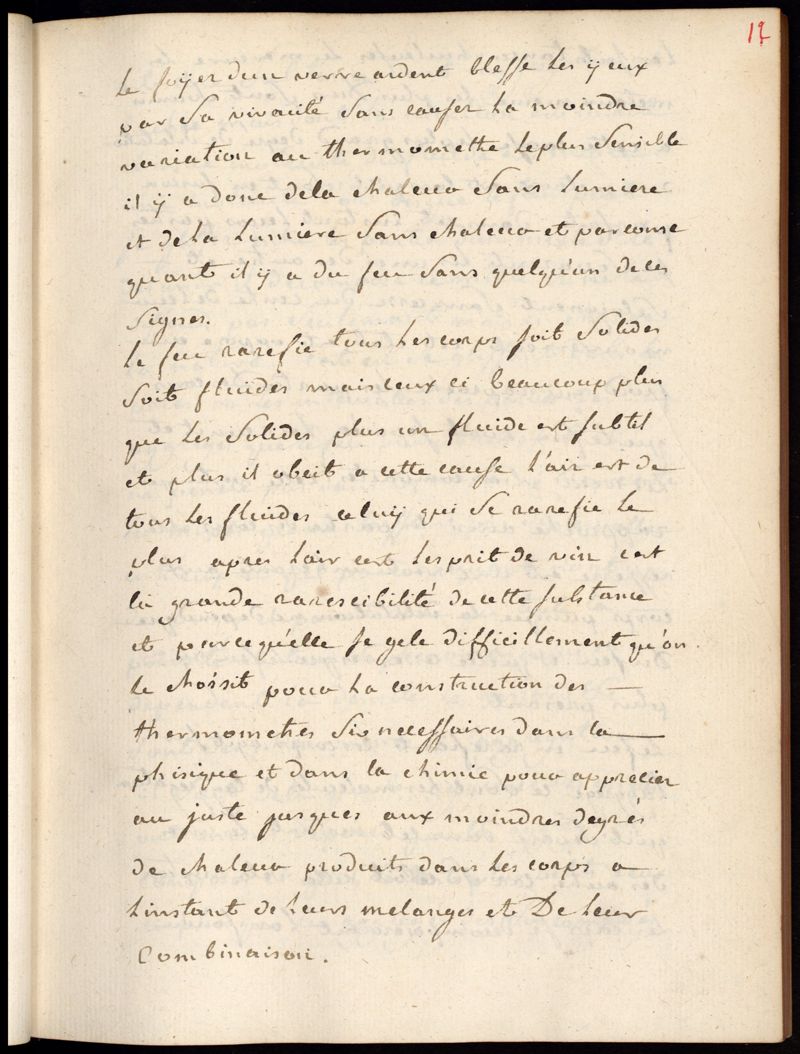 19
Le foÿer d'un verre ardent blesse les ÿeux
par Sa vivacité Sans causer la moindre
variation au thermomettre le plus Sensible
il ÿ a donc de la chaleur Sans Lumiere
et de la Lumiere Sans chaleur et par conse
quant il ÿ a du feu Sans quelqu'un de ces
Signes.
Le feu rarefie tous Les corps soit Solides
Soit fluides mais ceux ci beaucoup plus
que Les Solides plus un fluide est subtil
et plus il obeit a cette cause l'air est de
tous Les fluides celuÿ qui Se rarefie le
plus apres lair cest lesprit de vin cest
la grande rarescibilité de cette substance
et parcequ'elle se gele difficillement qu'on
le choisit pour La construction des —
thermometres Si necessaires dans la
phisique et dans la chimie pour apprecier
au juste jusques aux moindres degrés
de chaleur produits dans Les corps a
Linstant de Leurs melanges et De Leur
Combinaison.